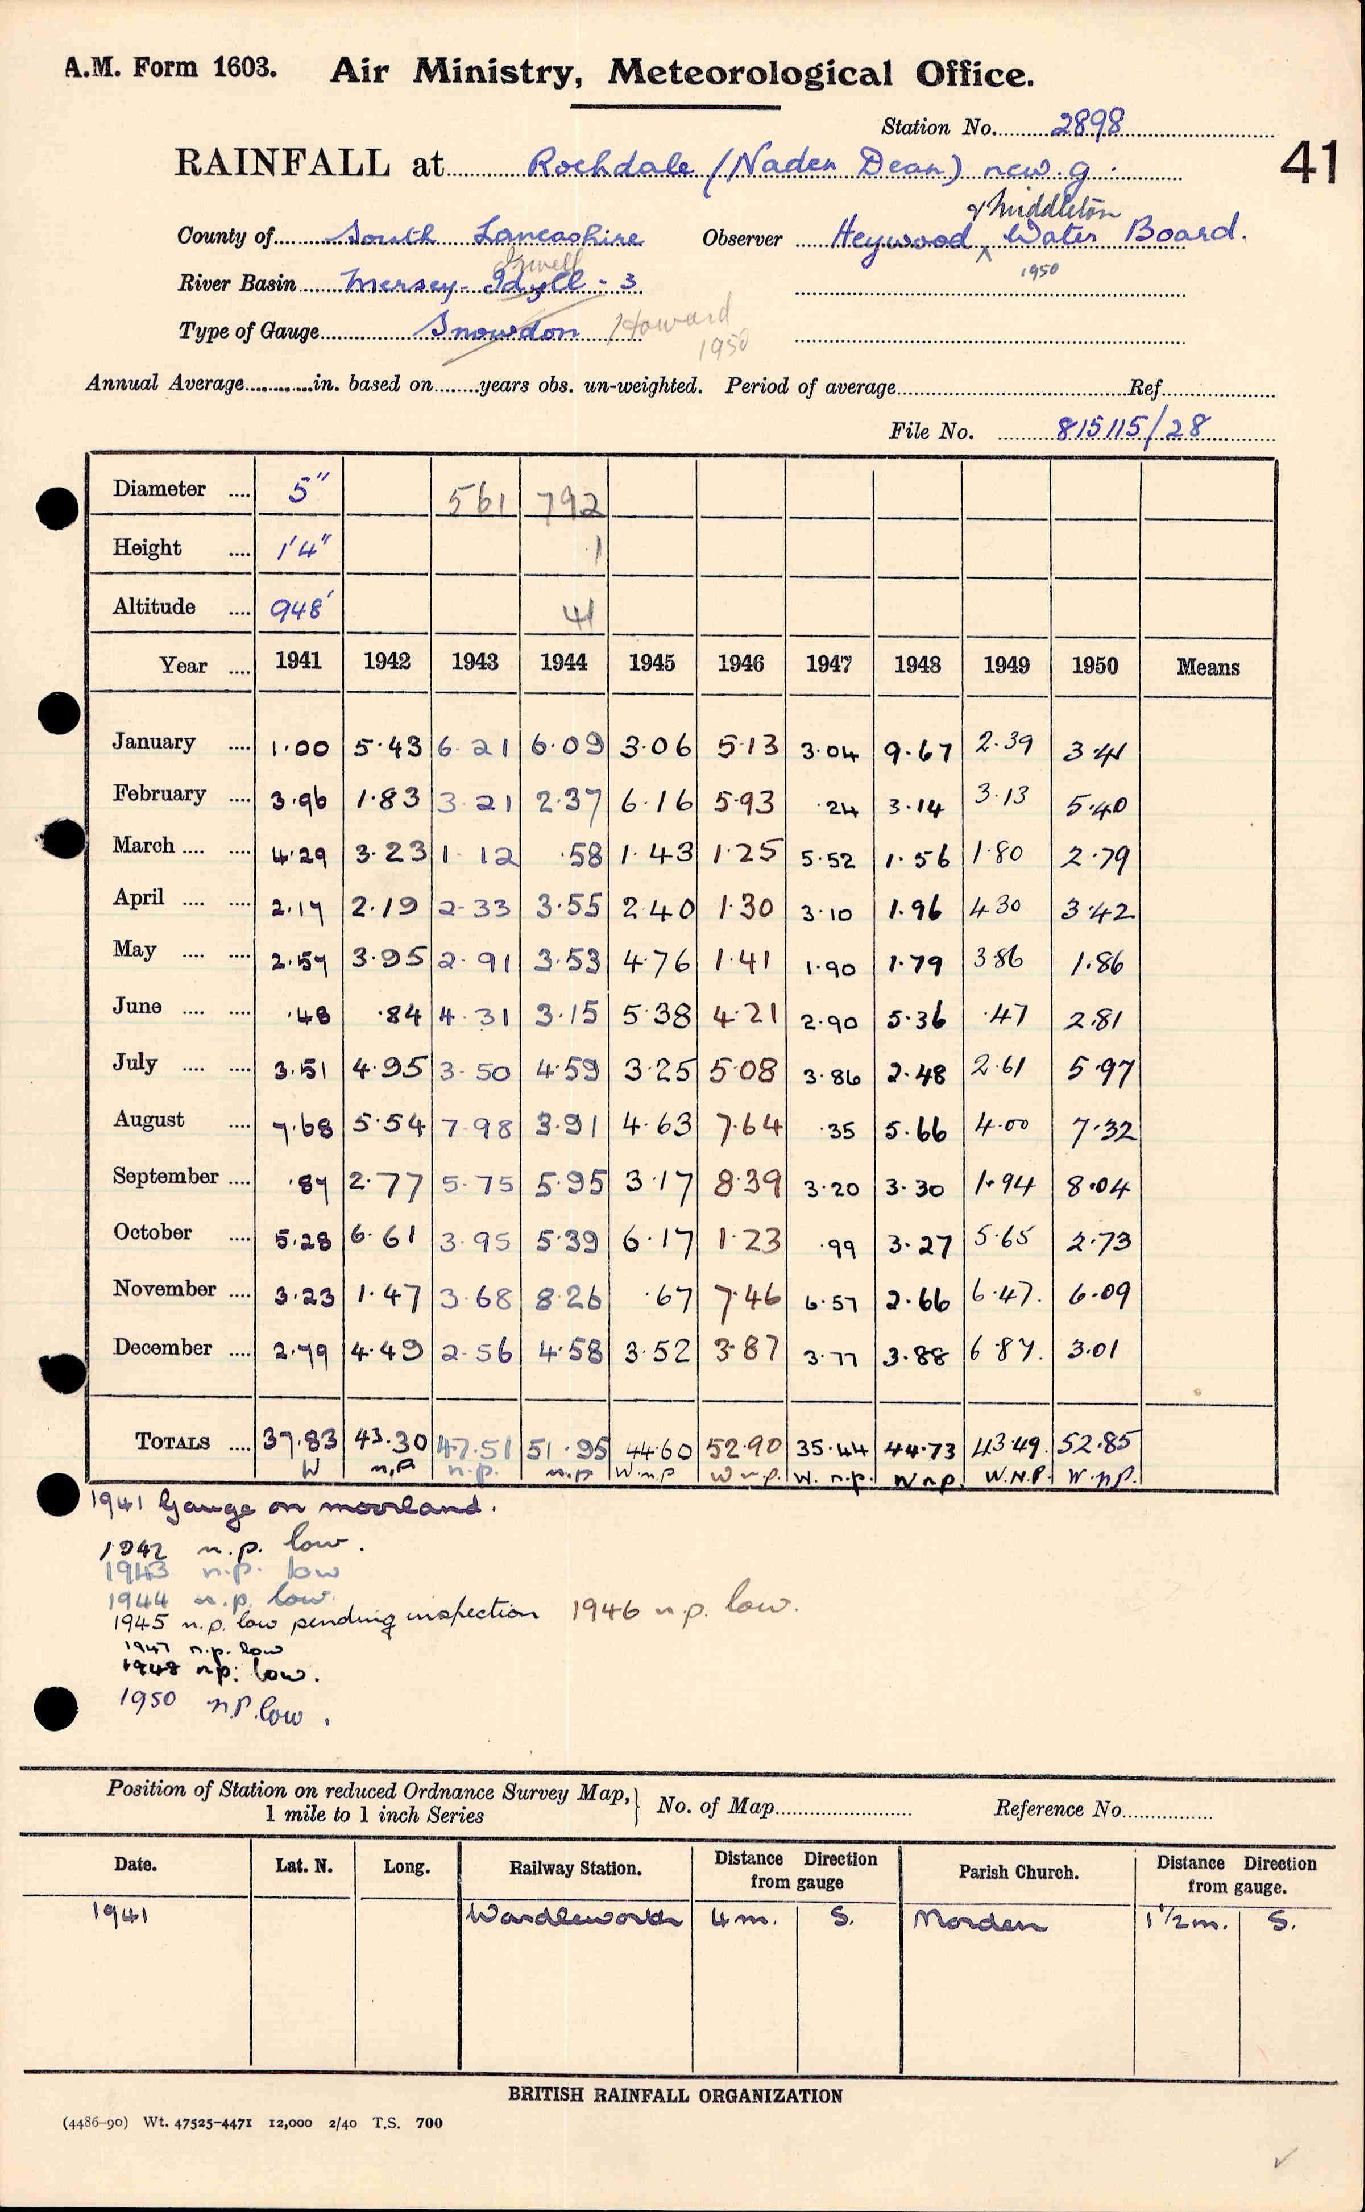 A.M. Form 1603. Air Ministry, Meteorological Office.
Station No. 2898
41
RAINFALL at Rochdale (Naden Dean) new. g.
& Middleton
County of South Lancashire Observer Heywood ^ Water Board.
Irwell
1950
River Basin Mersey - Idyll - 3
Type of Gauge Snowdon Howard
1950
Annual Average in. based on years obs. un-weighted. Period of average Ref
File No. 815115/28
Diameter 5" 561 792
Height 1'4" 1
Altitude 948' 41
Year 1941 1942 1943 1944 1945 1946 1947 1948 1949 1950 Means
January 1.00 5.43 6.21 6.09 3.06 5.13 3.04 9.67 2.39 3.41
February 3.96 1.83 3.21 2.37 6.16 5.93 .24 3.14 3.13 5.40
March 4.29 3.23 1.12 .58 1.43 1.25 5.52 1.56 1.80 2.79
April 2.17 2.19 2.33 3.55 2.40 1.30 3.10 1.96 4.30 3.42
May 2.57 3.95 2.91 3.53 4.76 1.41 1.90 1.79 3.86 1.86
June .48 .84 4.31 3.15 5.38 4.21 2.90 5.36 .47 2.81
July 3.51 4.95 3.50 4.59 3.25 5.08 3.86 2.48 2.61 5.97
August 7.68 5.54 7.98 3.91 4.63 7.64 .35 5.66 4.00 7.32
September .87 2.77 5.75 5.95 3.17 8.39 3.20 3.30 1.94 8.04
October 5.28 6.61 3.95 5.39 6.17 1.23 .99 3.27 5.65 2.73
November 3.23 1.47 3.68 8.26 .67 7.46 6.57 2.66 6.47. 6.09
December 2.79 4.49 2.56 4.58 3.52 3.87 3.77 3.88 6.87. 3.01
TOTALS 37.83 43.30 47.51 51.95 44.60 52.90 35.44 44.73 43.49. 52.85
W n.p n.p. n.p W.n.p W n.p. W. n.p. W n.p. W.N.P. W.n.p.
1941 Gauge on moorland.
1942 n.p. low.
1943 n.p. low
1944 n.p. low.
1945 n.p. low pending inspection 1946 n.p. low.
1947 n.p. low
1948 n.p. low.
1950 n.p. low.
Position of Station on reduced Ordnance Survey Map, } No. of Map Reference No.
1 mile to 1 inch Series
Date. Lat. N. Long. Railway Station. Distance Direction from gauge Parish Church. Distance Direction from gauge.
1941 Wardleworth 4 m. S. Norden 1 1/2 m. S.
BRITISH RAINFALL ORGANIZATION
(4486-90) Wt. 47525-4471 12,000 2/40 T.S. 700